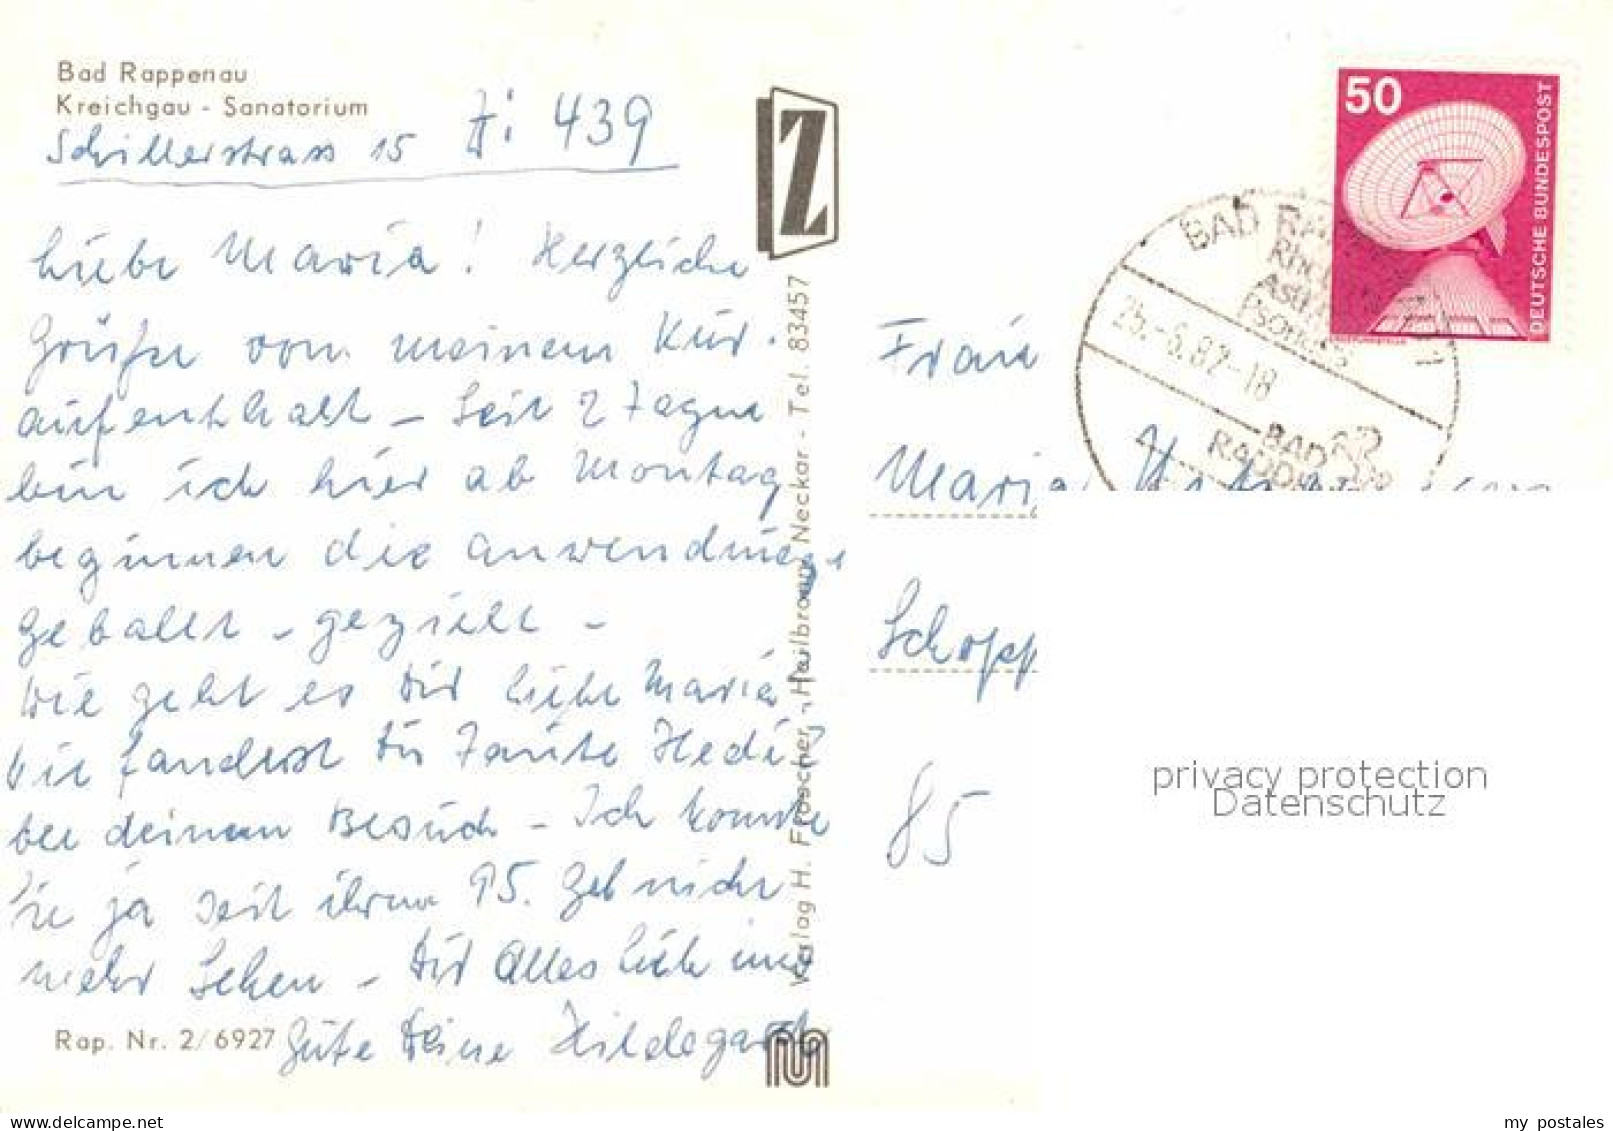 Bad Rappenau
Kreichgau - Sanatorium
Schillerstrass 15 Zi 439
Liebe Maria! Herzliche
Grüße von meinem Kur-
aufenthalt - Seit 2 Tagen
bin ich hier ab Montag
beginnen die Anwendungen
geballt - gezielt -
Wie geht es Dir liebe Maria
wie fandest Du Tante Hedi?
bei deinem Besuch - Ich konnte
Sie ja seit ihrem 95. Geb nicht
mehr sehen - Dir Alles liebe und
Gute Deine Hildegard
Rap. Nr. 2/6927
Verlag H. Fröscher, Heilbronn, Neckar - Tel. 83457
Z
50
DEUTSCHE BUNDESPOST
BAD
25.-6.82-18
BAD
Frau
Maria
Schopp
85
privacy protection
Datenschutz
www.delcampe.net
my postales